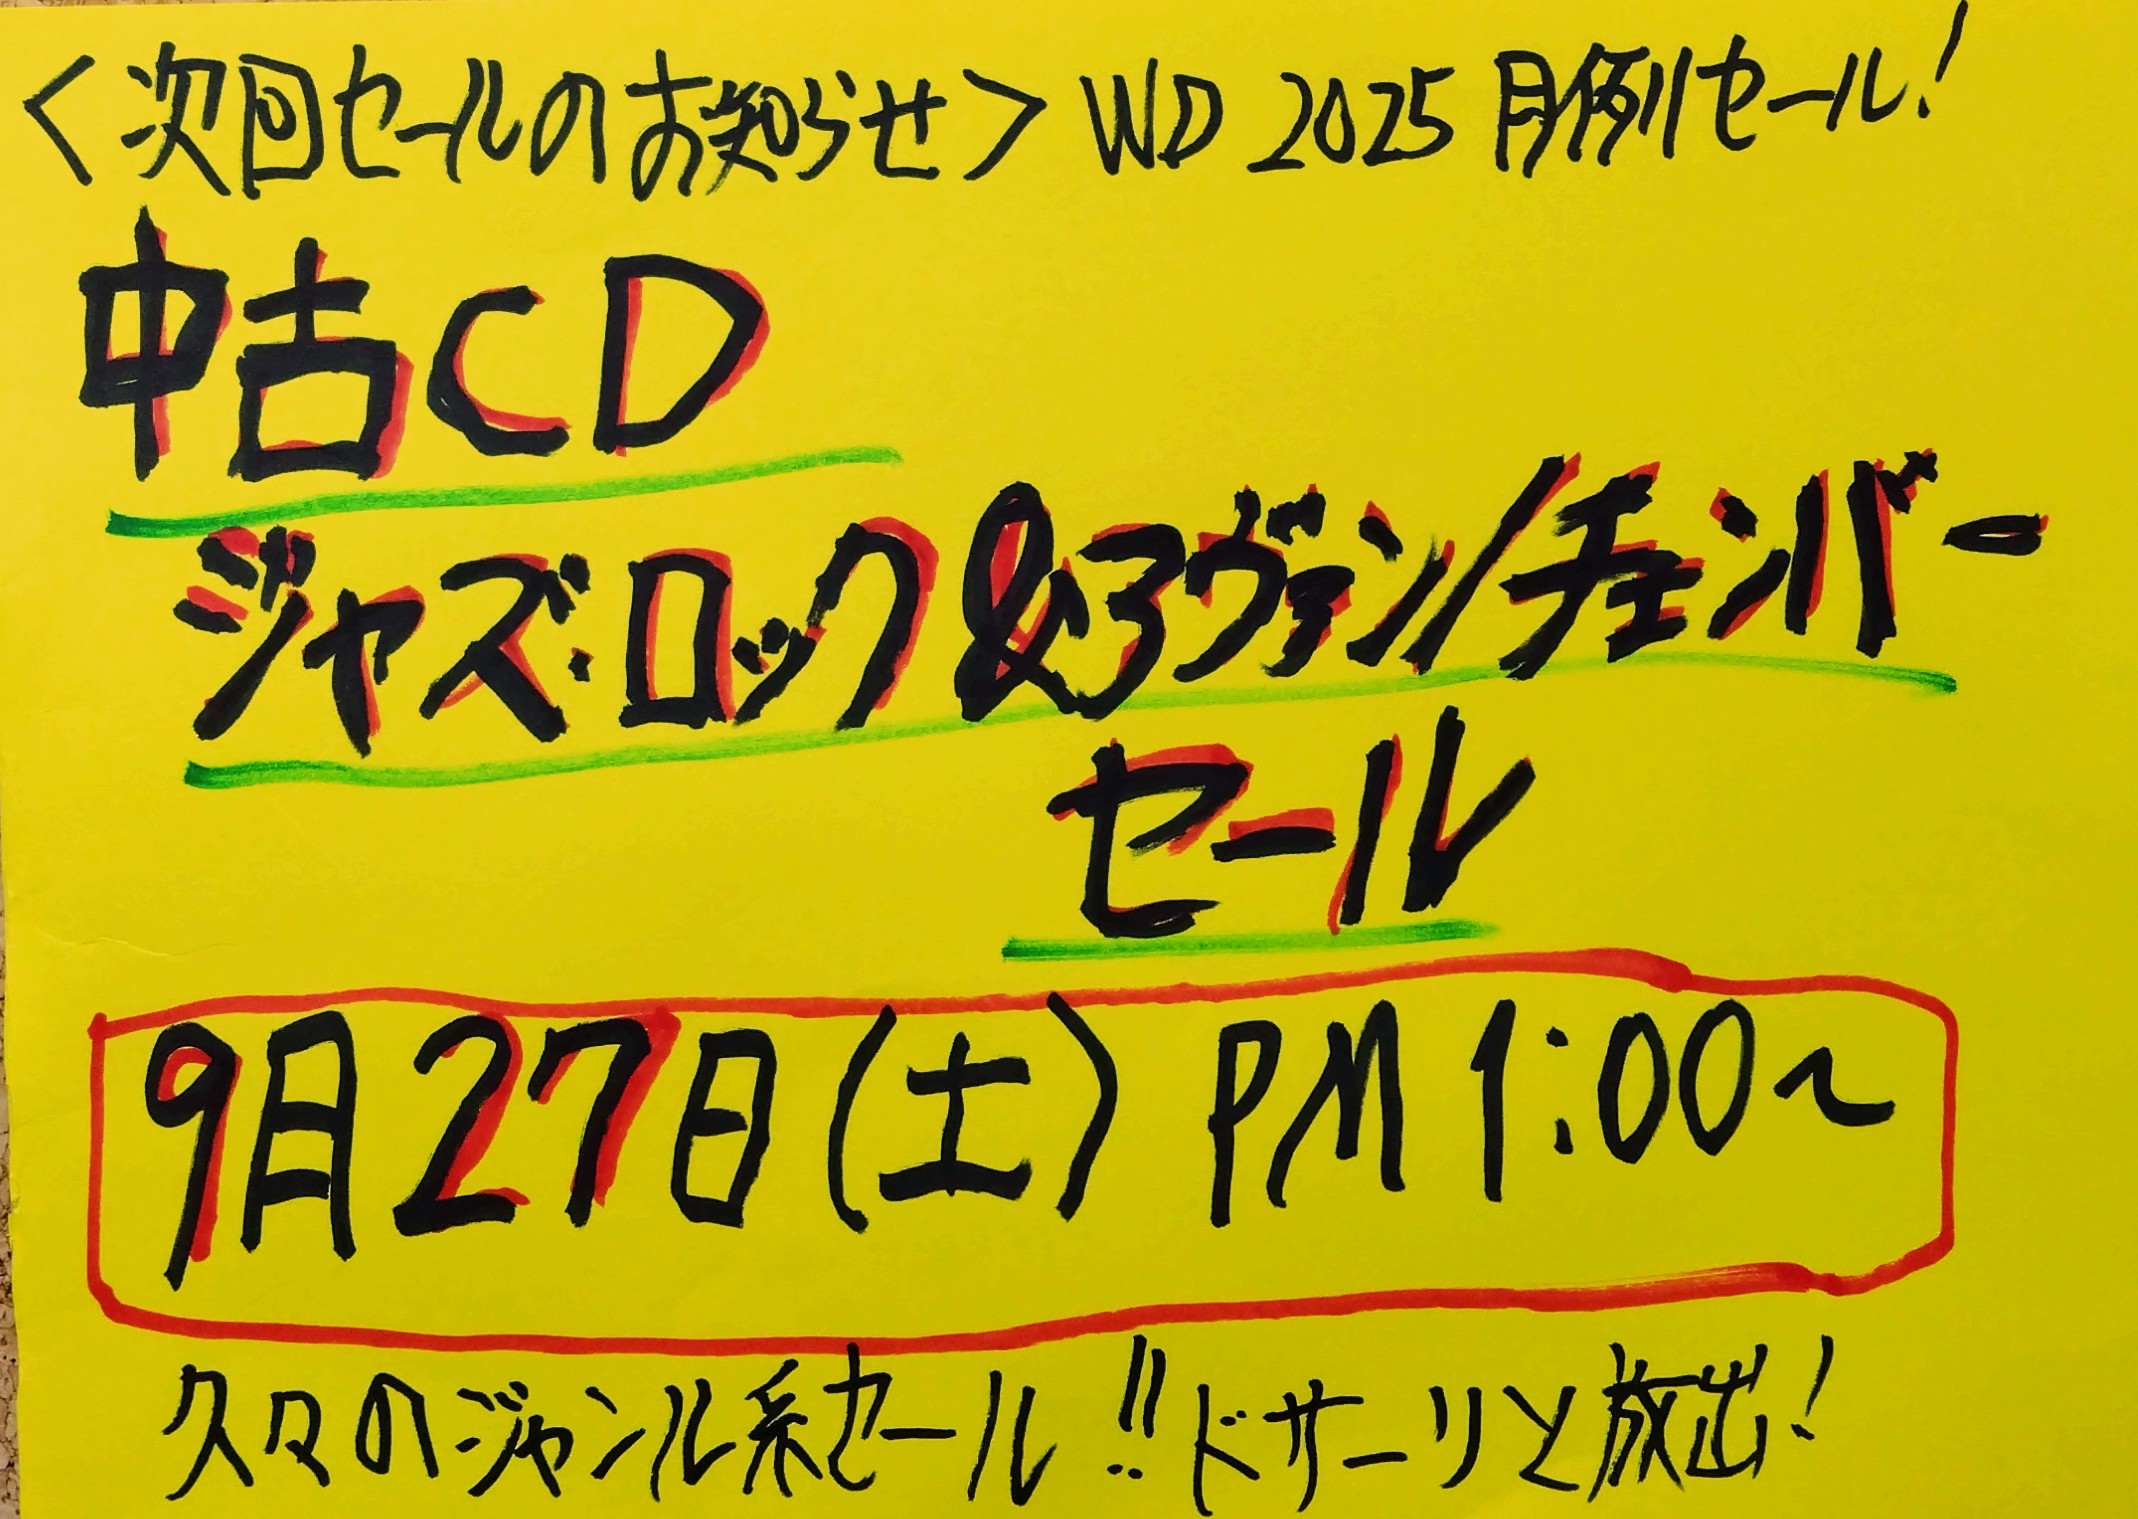 <次回セールのお知らせ> WD 2025 月例セール!
中古CD
ジャズ・ロック&アヴァン/チェンバー
セール
9月27日(土) PM 1:00~
久々のジャンル系セール!! ドサーリと放出!